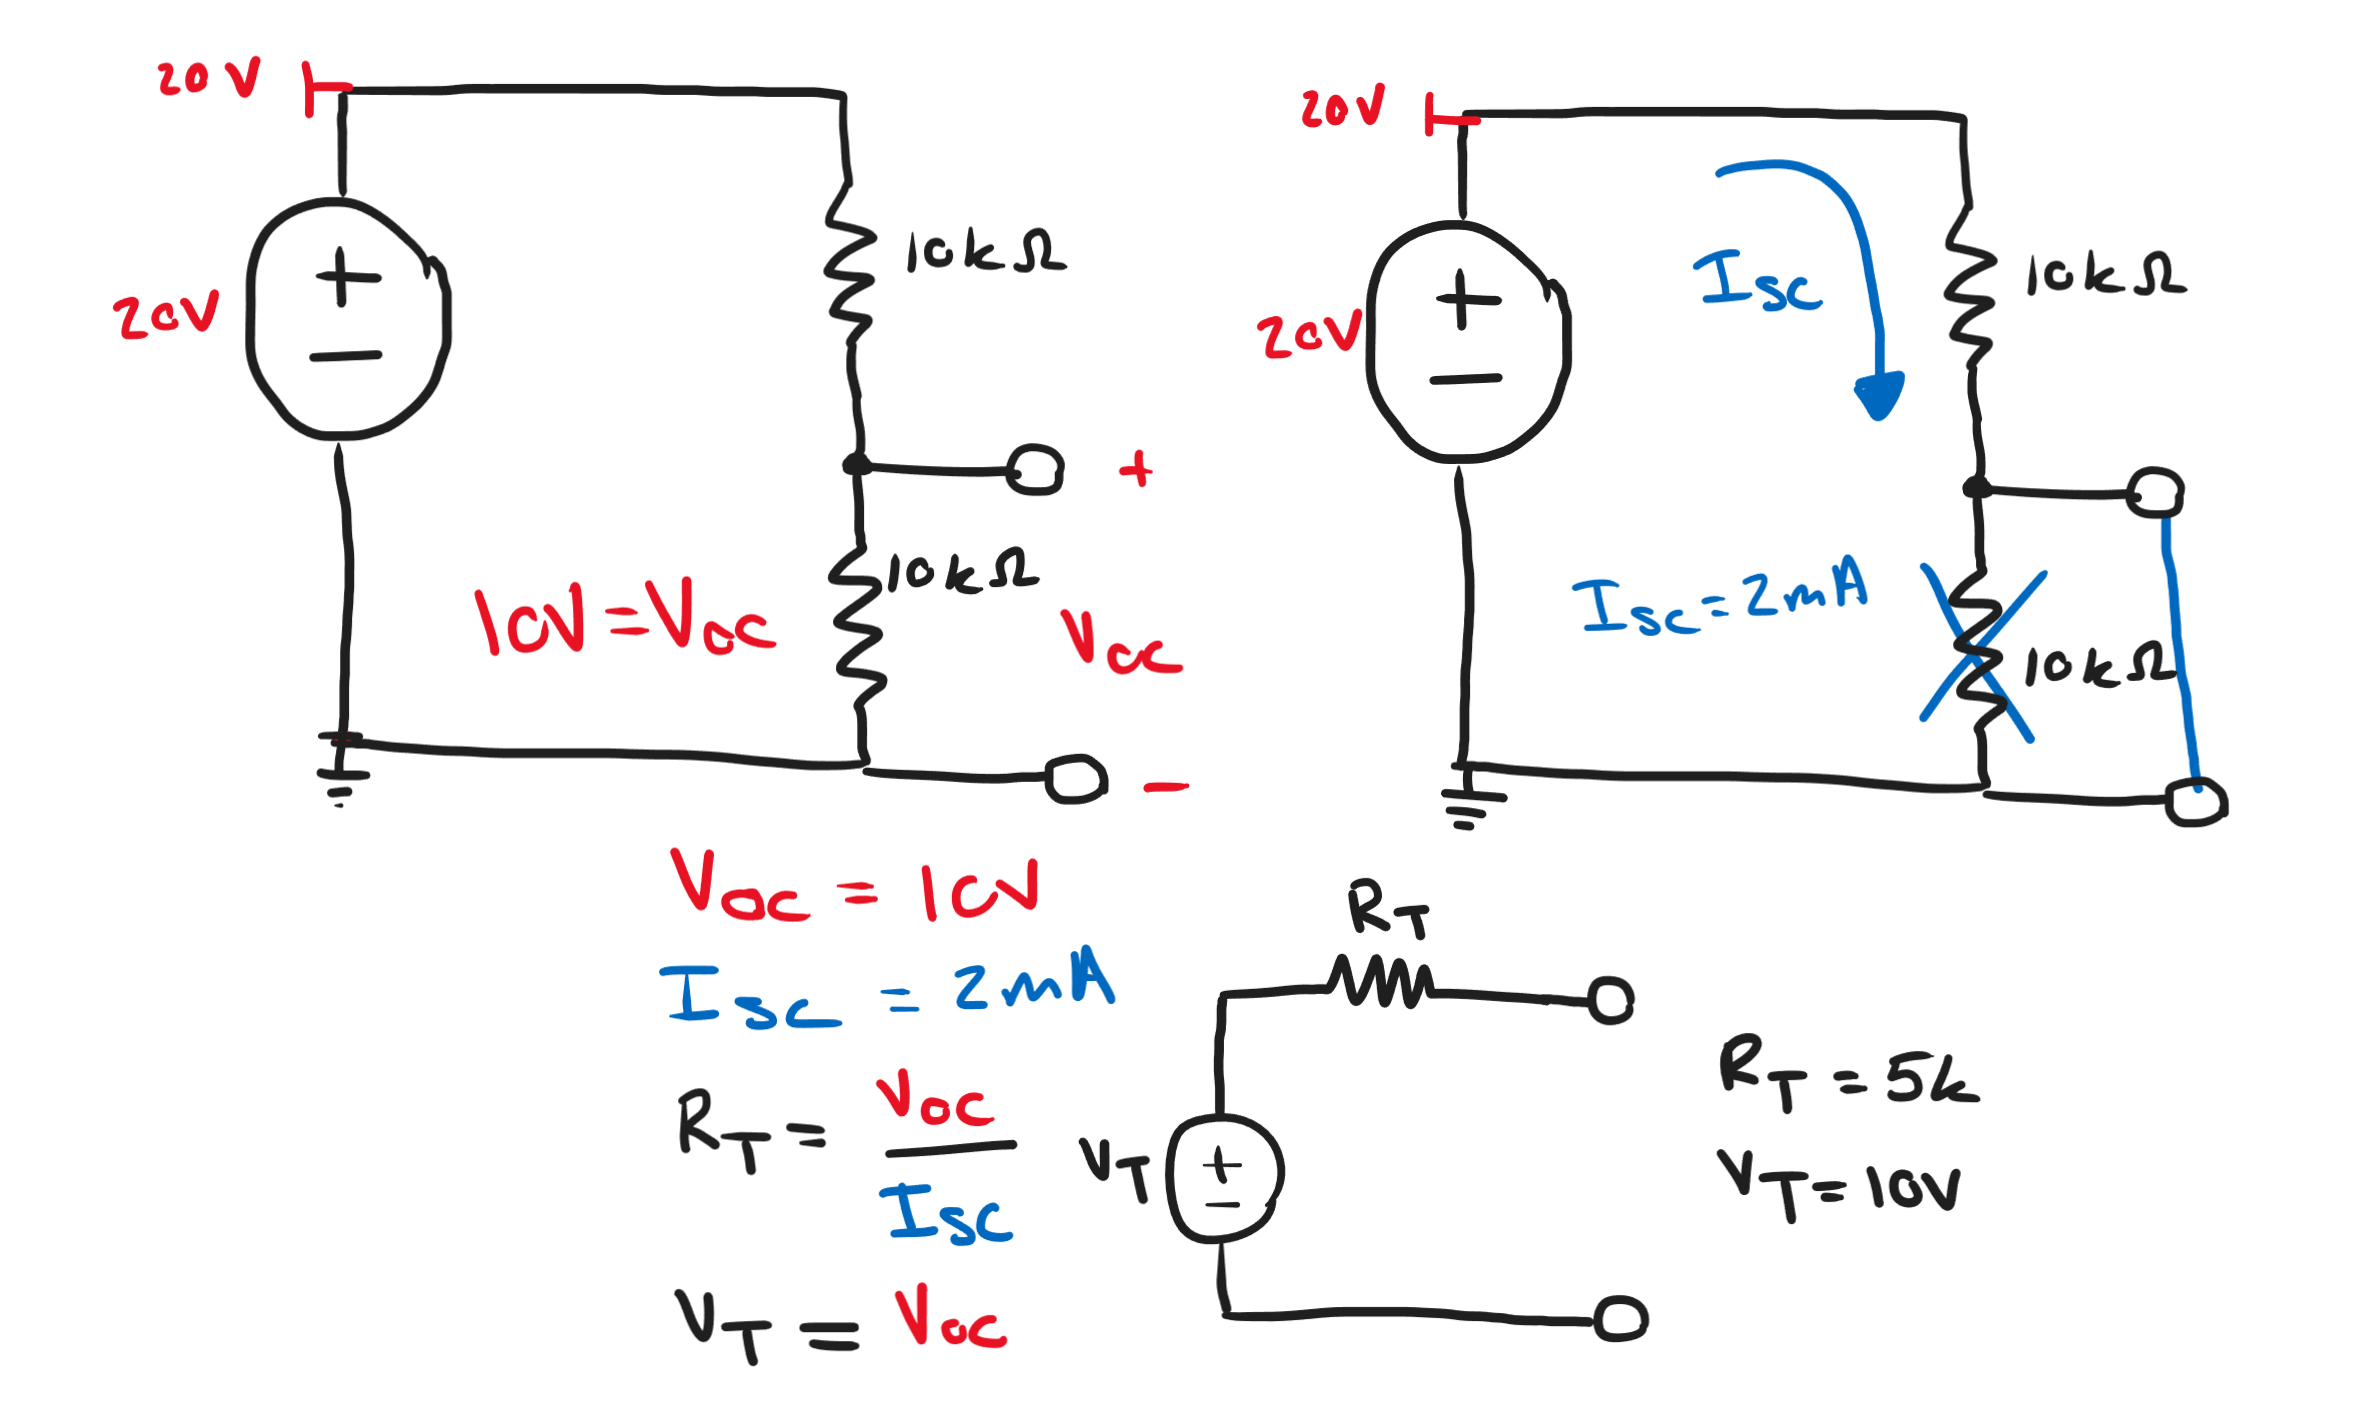 20V
20V
+
−
10kΩ
+
10kΩ
10V = VOC
VOC
−
20V
20V
+
−
ISC
10kΩ
ISC = 2mA
10kΩ
VOC = 10V
ISC = 2mA
RT = VOC / ISC
VT = VOC
RT
VT
+
−
RT = 5k
VT = 10V